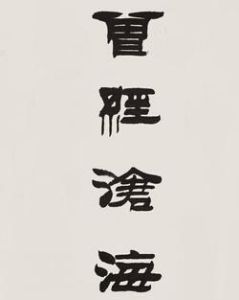 曾經滄海